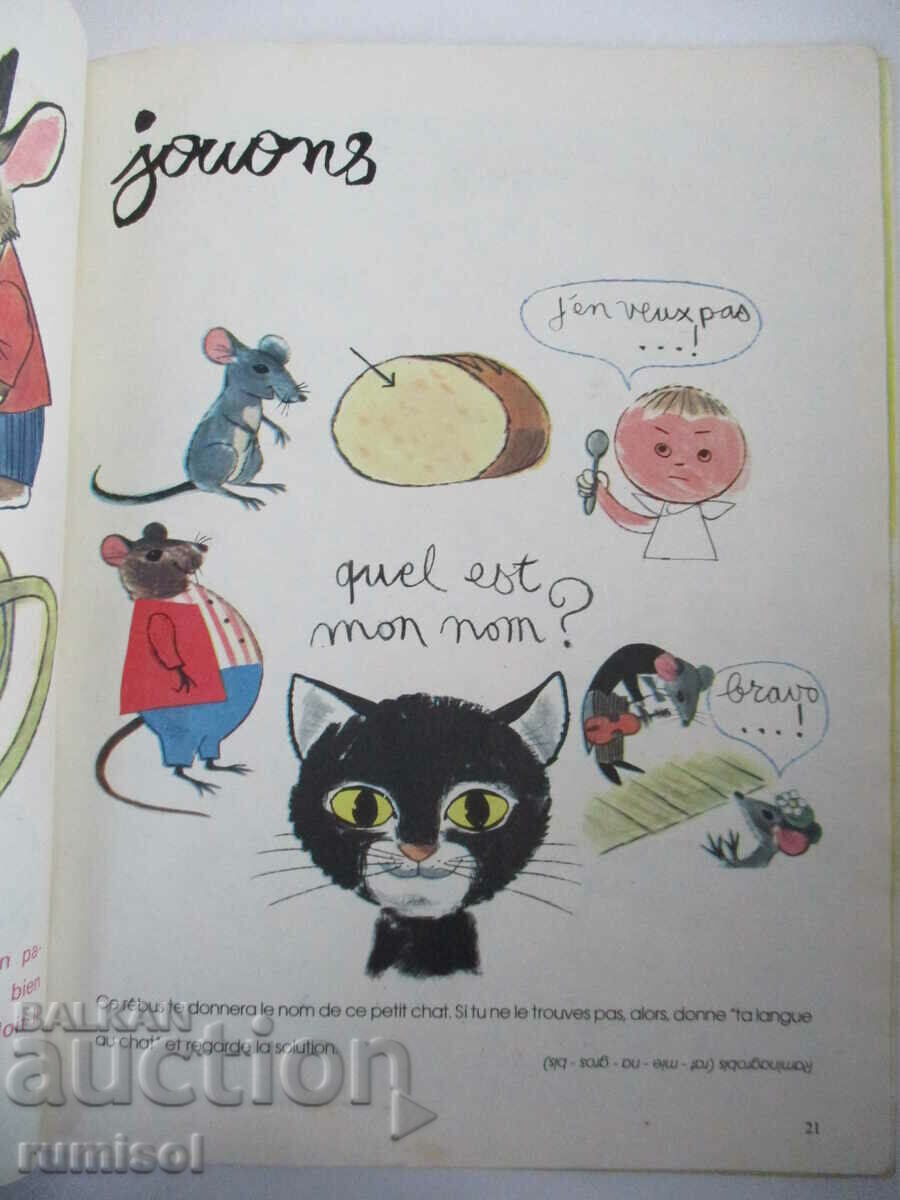 jouons
j'en veux pas
...!
quel est
mon nom?
bravo
...!
n pa-
bien
Ce rébus te donnera le nom de ce petit chat. Si tu ne le trouves pas, alors, donne "ta langue
au chat" et regarde la solution.
Raminagrobis (rat - mie - na - gros - bis)
21
BALKAN
auction
rumisol